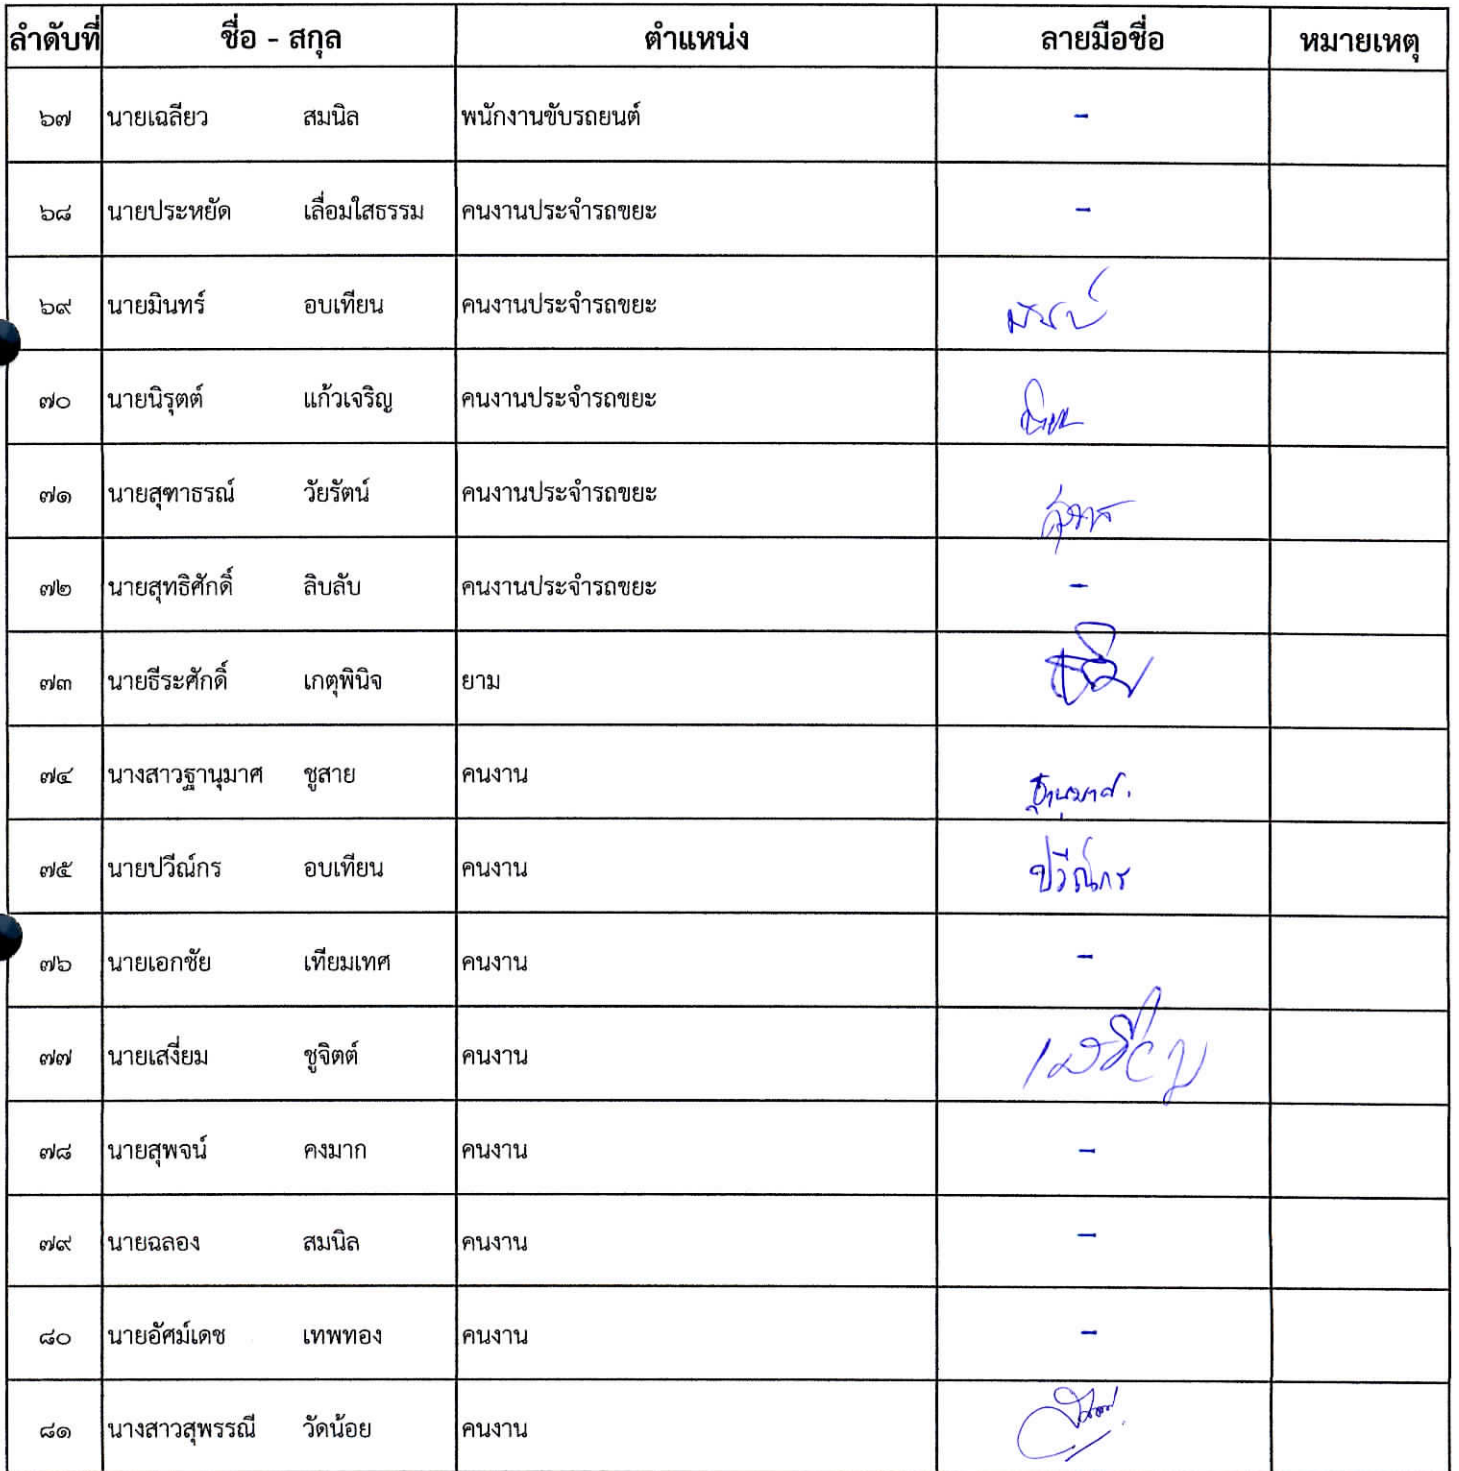 ลำดับที่ ชื่อ - สกุล ตำแหน่ง ลายมือชื่อ หมายเหตุ
๖๗ นายเฉลียว สมนิล พนักงานขับรถยนต์ -
๖๘ นายประหยัด เลื่อมใสธรรม คนงานประจำรถขยะ -
๖๙ นายมินทร์ อบเทียน คนงานประจำรถขยะ
๗๐ นายนิรุตต์ แก้วเจริญ คนงานประจำรถขยะ
๗๑ นายสุฑาธรณ์ วัยรัตน์ คนงานประจำรถขยะ
๗๒ นายสุทธิศักดิ์ ลิบลับ คนงานประจำรถขยะ -
๗๓ นายธีระศักดิ์ เกตุพินิจ ยาม
๗๔ นางสาวฐานุมาศ ชูสาย คนงาน ฐานุมาศ.
๗๕ นายปวีณ์กร อบเทียน คนงาน ปวีณ์กร
๗๖ นายเอกชัย เทียมเทศ คนงาน -
๗๗ นายเสงี่ยม ชูจิตต์ คนงาน
๗๘ นายสุพจน์ คงมาก คนงาน -
๗๙ นายฉลอง สมนิล คนงาน -
๘๐ นายอัศม์เดช เทพทอง คนงาน -
๘๑ นางสาวสุพรรณี วัดน้อย คนงาน